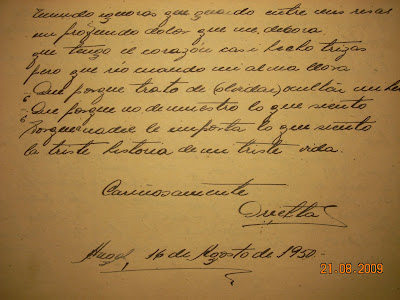 ignoras que guardo entre mis risas
un profundo dolor que me devora
que tengo el corazón casi hecho trizas
pero que río cuando mi alma llora
¿Que porque trato de (olvidar) ocultar un
¿Que porque no demuestro lo que siento
Porque a nadie le importa lo que siento
la triste historia de mi triste vida.
Cariñosamente
16 de Agosto de 1950.-
21.08.2009